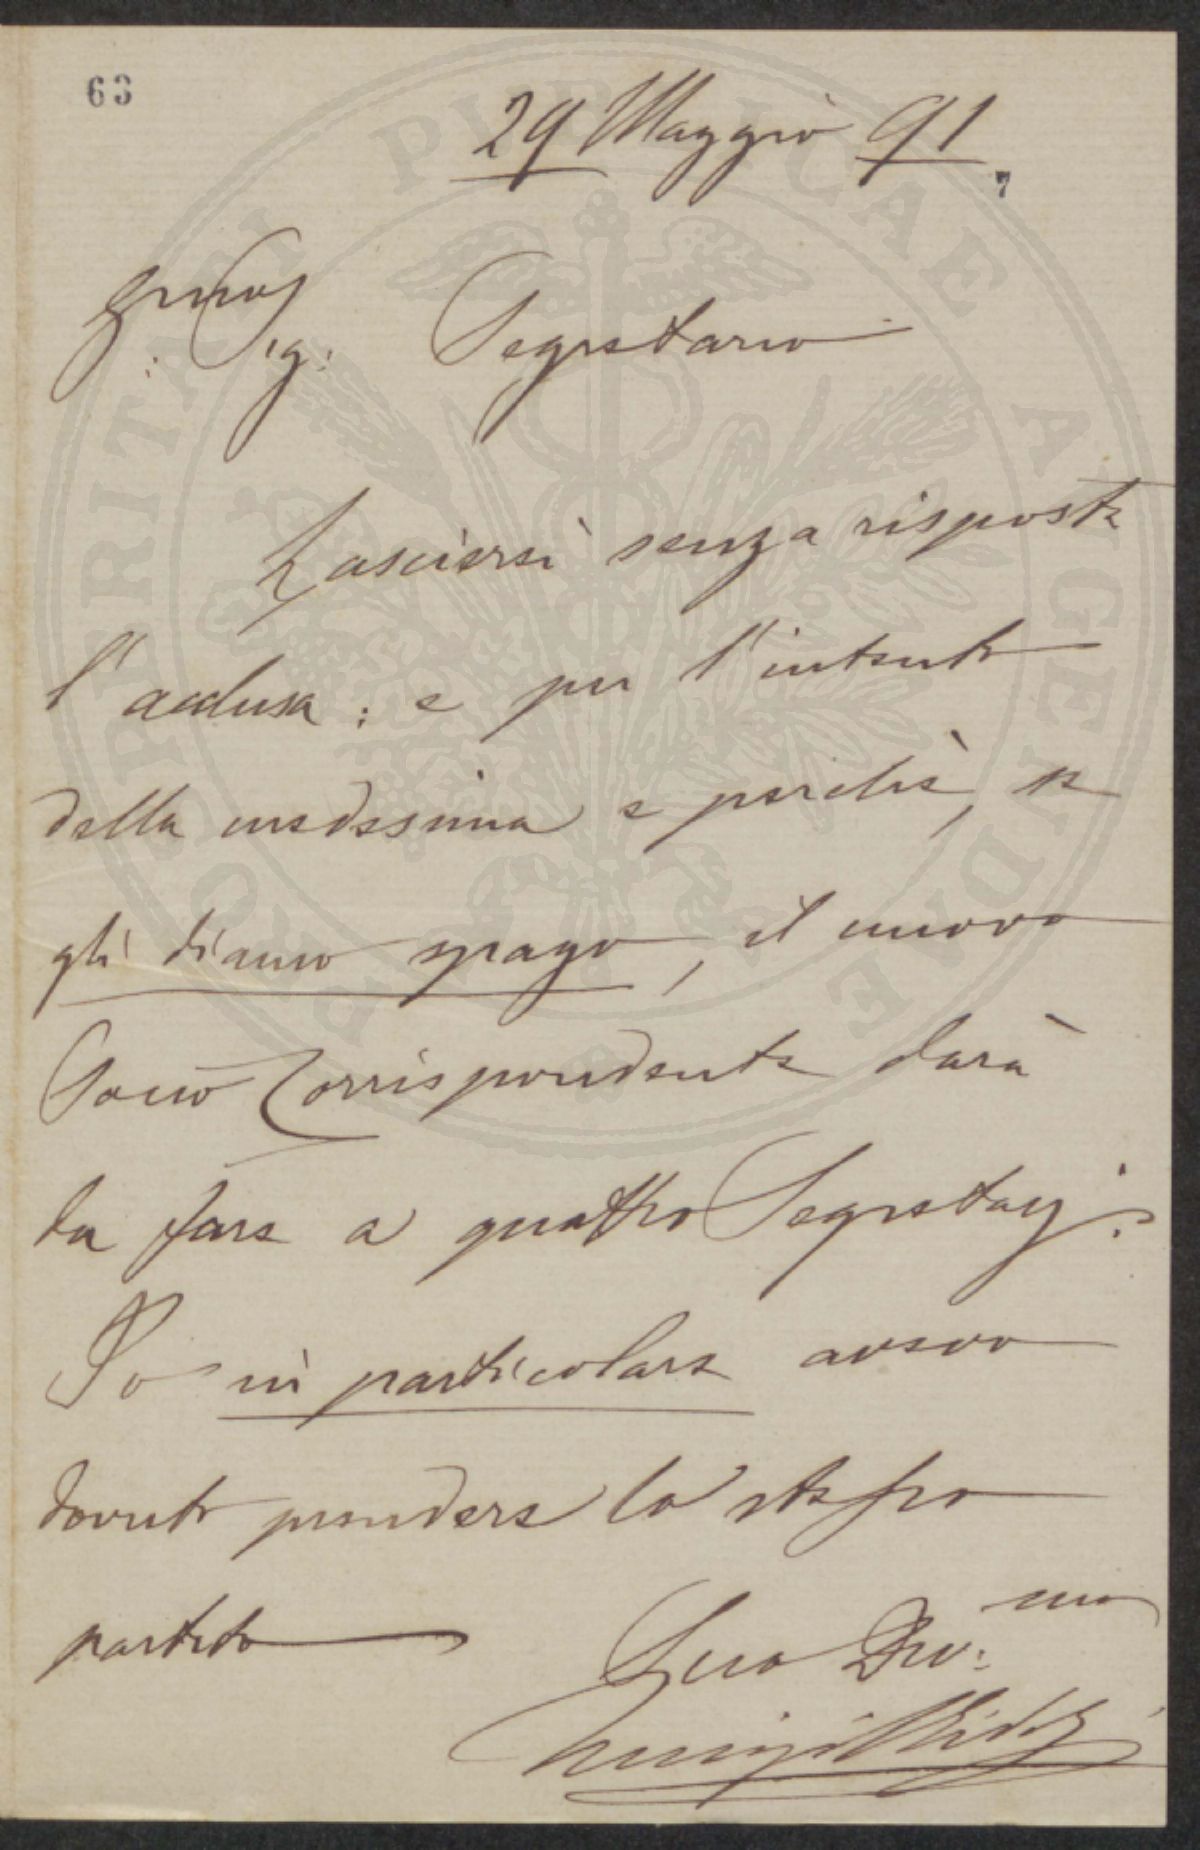 63
29 Maggio 91
7
Egregio
Sig: Segretario
Lascierei senza risposta
l'acclusa: e per l'intento
della medesima e perchè, se
gli diamo spago, il nuovo
Socio Corrispondente darà
da fare a quattro Segretarj.
Io in particolare avevo
dovuto prendere lo stesso
partito
Suo Dev:mo
Luigi Ridolfi
PUBLICAE AUGENDAE PROSPERITATI